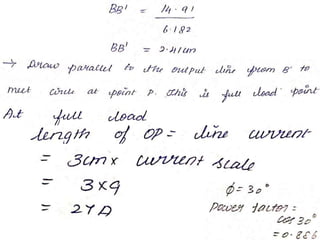 BB' = 14.91
6.182
BB' = 2.41cm
→ Draw parallel to the output line from B' to
meet circle at point P. This is full load point
At full load
length of OP = line current
= 3cm x current scale
= 3x9
= 27A
φ = 30°
Power factor =
cos 30°
= 0.866